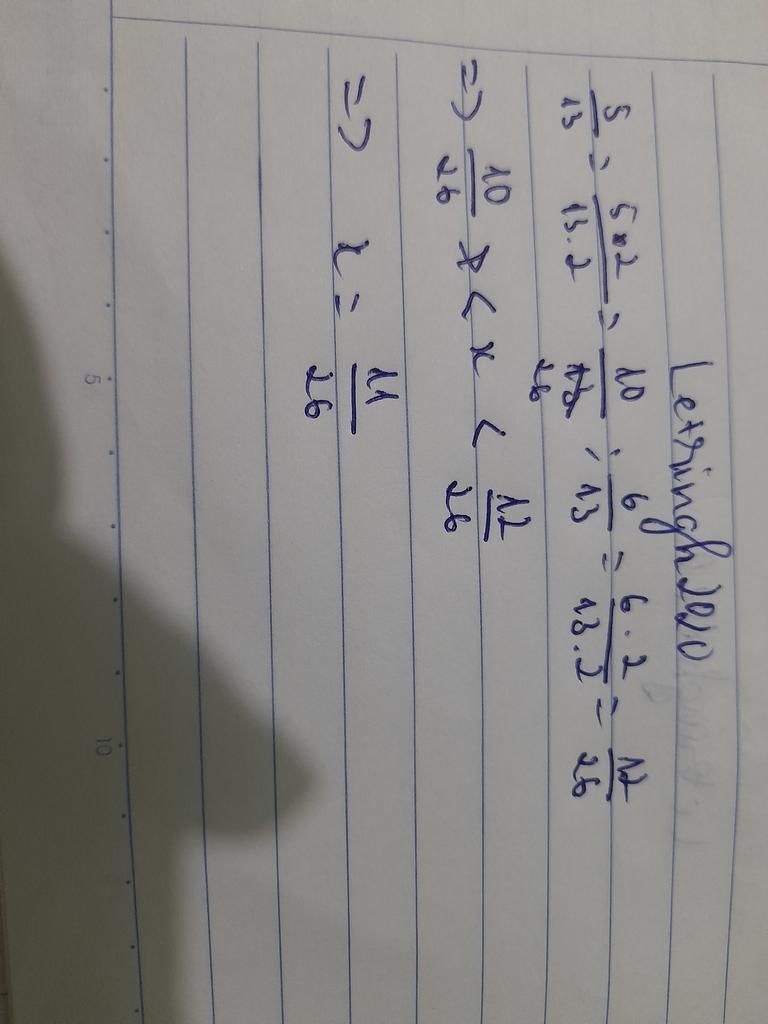 Letringh2020
5/13 = 5.2/13.2 = 10/26 ; 6/13 = 6.2/13.2 = 12/26
=> 10/26 < x < 12/26
=> x = 11/26
5 10